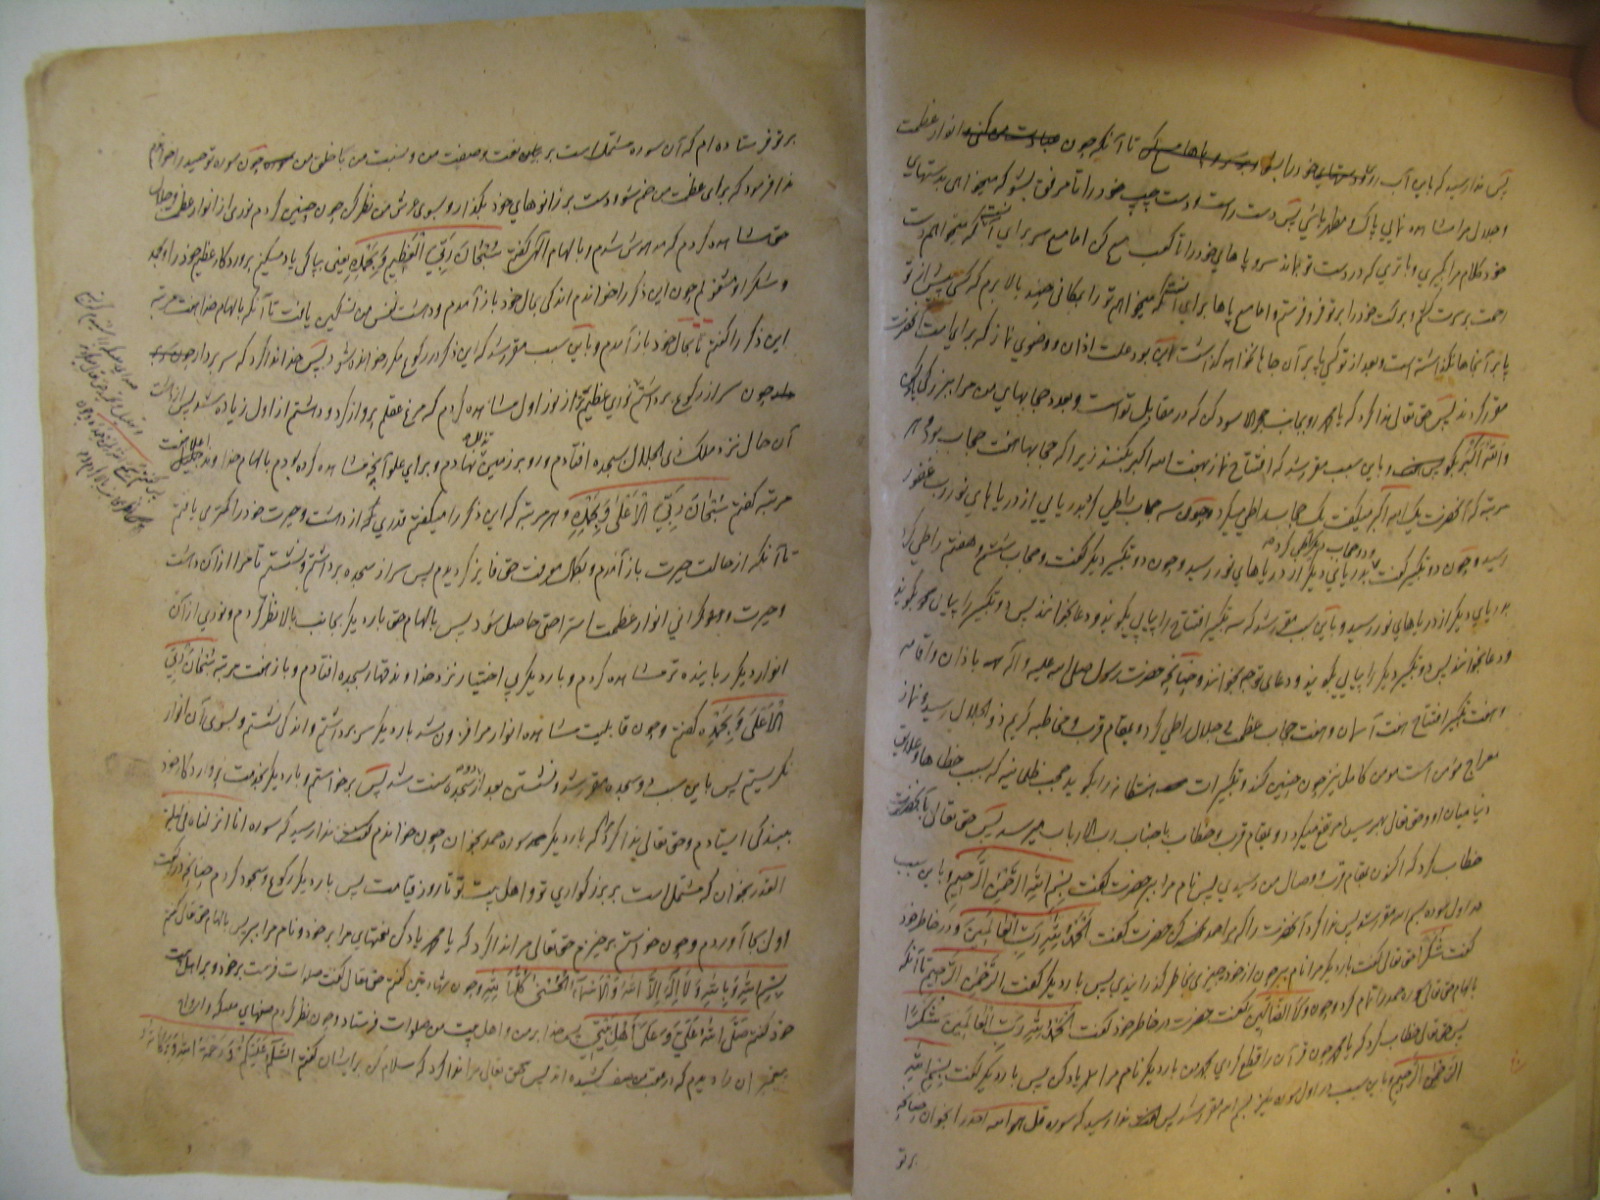 پس ندا رسید که باین آب تا آنکه چون انوار عظمت
و جلال مرا مشاهده نمایی پاک و مطهر باشی پس دست راست و دست چپ خود را تا مرفق بشو که میخواهی بدستهای
خود کلام مرا بگیری و باتری که در دست تو بماند سر و پاهای خود را تا کعب مسح کن اما مسح سر برای آنست که میخواهم دست
رحمت بر سرت کشم و برکت خود را بر تو فرو فرستم و اما مسح پاها برای آنکه میخواهم تو را بمکانی چند بالا برم که کسی پیش از تو
پا بر آنجاها نگذاشته است و بعد از تو کسی پا بر آن جاها نخواهد گذاشت این بود علت اذان و وضوی نماز که برای امت آنحضرت
مقرر کردند پس حق تعالی ندا کرد که یا محمد رو بجانب حجر الاسود کن که در مقابل تو است و بعدد حجابهای من مرا ببزرگی یاد کن
و الله اکبر بگو پس باین سبب مقرر شد که افتتاح نماز بهفت الله اکبر بکنند زیرا که حجابها هفت حجاب بود و هر
مرتبه که آنحضرت یک الله اکبر میگفت یک حجاب را طی میکرد چون سه حجاب را طی کرد بدریایی از دریاهای نور رب غفور
رسید و چون دو تکبیر گفت و دو حجاب دیگر طی کرد بدریای دیگر از دریاهای نور رسید و چون دو تکبیر دیگر گفت و حجاب ششم و هفتم را طی کرد
بدریای دیگر از دریاهای نور رسید و باین سبب مقرر شد که سه تکبیر افتتاح را پیاپی بگویند و دعا بخوانند پس دو تکبیر را پیاپی بگویند
و دعا بخوانند پس دو تکبیر دیگر را پیاپی بگویند و دعای توجه بخوانند و چنانچه حضرت رسول صلی الله علیه و آله باذان و اقامه
و هفت تکبیر افتتاح هفت آسمان و هفت حجاب عظمت و جلال را طی کرد و بمقام قرب و مخاطبه کریم ذو الجلال رسید و نماز
معراج مؤمن است مومن کامل نیز چون چنین کند و تکبیرات را بگوید حجب ظلمانیه که بسبب خطاها و علایق
دنیا میان او و حق تعالی بهم رسیده مرتفع میگردد و بمقام قرب و خطاب با جناب رب الارباب میرسد پس حق تعالی بآنحضرت
خطاب کرد که اکنون بمقام قرب و وصال من رسیدی پس نام مرا ببر حضرت گفت بسم الله الرحمن الرحیم و باین سبب
در اول سوره بسم الله مقرر شد پس ندا کرد آنحضرت را که مرا حمد کن حضرت گفت الحمد لله رب العالمین و در خاطر خود
گفت شکرا حق تعالی گفت بار دیگر مرا نام ببر چون از خود چیزی بخاطر گذرانیدی پس بار دیگر گفت الرحمن الرحیم تا آنکه
بالهام حق تعالی سوره حمد را تمام کرد و چون و لا الضالین گفت حضرت در خاطر خود گفت الحمد لله رب العالمین شکرا
پس حق تعالی خطاب کرد که یا محمد چون قرآن را قطع کردی بحمد من بار دیگر نام مرا یاد کن پس بار دیگر گفت بسم الله
الرحمن الرحیم و باین سبب در اول سوره نیز بسم الله مقرر شد پس ندا رسید که سوره قل هو الله احد را بخوان چنانچه
بر تو
بر تو فرستاده ام که آن سوره مشتمل است بر نعت و صفت من و نسبت من با خلق من چون سوره توحید را خواندم
ندا فرمود که برای عظمت من خم شو و دست بر زانوهای خود بگذار و بسوی عرش من نظر کن چون چنین کردم نوری از انوار عظمت و جلال
حق مشاهده کردم که مدهوش شدم و بالهام الهی گفتم سبحان ربی العظیم و بحمده یعنی بپاکی یاد میکنم پروردگار عظیم خود را و بحمد
و شکر او مشغولم چون این ذکر را خواندم اندکی بحال خود باز آمدم و دهشت نفس من تسکین یافت تا آنکه بالهام خدا هفت مرتبه
این ذکر را گفتم تا بحال خود باز آمدم و باین سبب مقرر شد که این ذکر در رکوع مکرر خوانده شود پس خدا ندا کرد که سر بردار
چون سر از رکوع برداشتم نوری عظیم‌تر از نور اول مشاهده کردم که مرغ عقلم پرواز کرد و دهشتم از اول زیاده شد پس از دهشت
آن حال نزد ملک ذی الجلال بسجده افتادم و رو بر زمین تذلل نهادم و برای علو آنچه مشاهده کرده بودم بالهام خداوند جلیل هفت
مرتبه گفتم سبحان ربی الاعلی و بحمده و هر مرتبه که این ذکر را میگفتم قدری از دهشت و حیرت خود را کمتری یافتم
تا آنکه از حالت حیرت باز آمدم و بکمال معرفت حق فایز گردیدم پس سر از سجده برداشتم و نشستم تا مرا از آن دهشت
و حیرت و گرانی انوار عظمت استراحتی حاصل شود پس بالهام حق بار دیگر بجانب بالا نظر کردم و نوری از آن
انوار دیگر رباینده‌تر مشاهده کردم و بار دیگر بی اختیار نزد خداوند قهار بسجده افتادم و باز هفت مرتبه سبحان ربی
الاعلی و بحمده گفتم و چون قابلیت مشاهده انوار مرا افزون شد بار دیگر سر برداشتم و اندکی نشستم و بسوی آن انوار
نگریستم پس باین سبب دو سجده مقرر شد و نشستن بعد از دو سجده سنت شد پس برخواستم و بار دیگر بخدمت پروردگار خود
ببندگی ایستادم و حق تعالی ندا کرد که بار دیگر سوره حمد بخوان چون خواندم ندا رسید که سوره انا انزلناه فی لیلة
القدر بخوان که مشتمل است بر بزرگواری تو و اهل بیت تو تا روز قیامت پس بار دیگر رکوع و سجود کردم چنانچه در رکعت
اول بجا آوردم و چون خواستم برخیزم حق تعالی مرا ندا کرد که یا محمد یاد کن نعمتهای مرا بر خود و نام مرا ببر پس بالهام حق تعالی گفتم
بسم الله و بالله و لا اله الا الله و الاسماء الحسنی کلها لله و چون شهادتین گفتم حق تعالی گفت صلوات فرست بر خود و بر اهل بیت
خود گفتم صلی الله علی و علی اهل بیتی پس خدا بر من و اهل بیت من صلوات فرستاد و چون نظر کردم صفهای ملائکه و ارواح
پیغمبران را دیدم که در عقب من صف کشیده اند پس حق تعالی مرا ندا کرد که سلام کن بر ایشان گفتم السلام علیکم و رحمة الله و برکاته